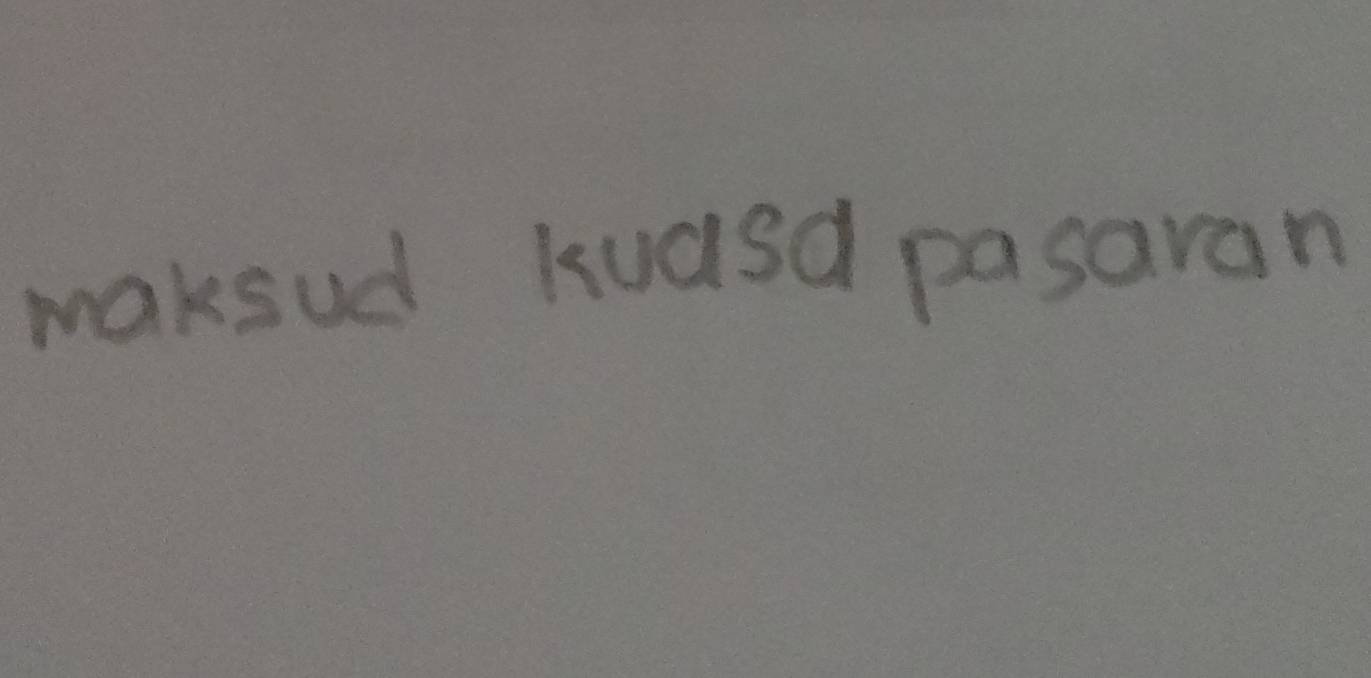 maksud kuasa pasaran